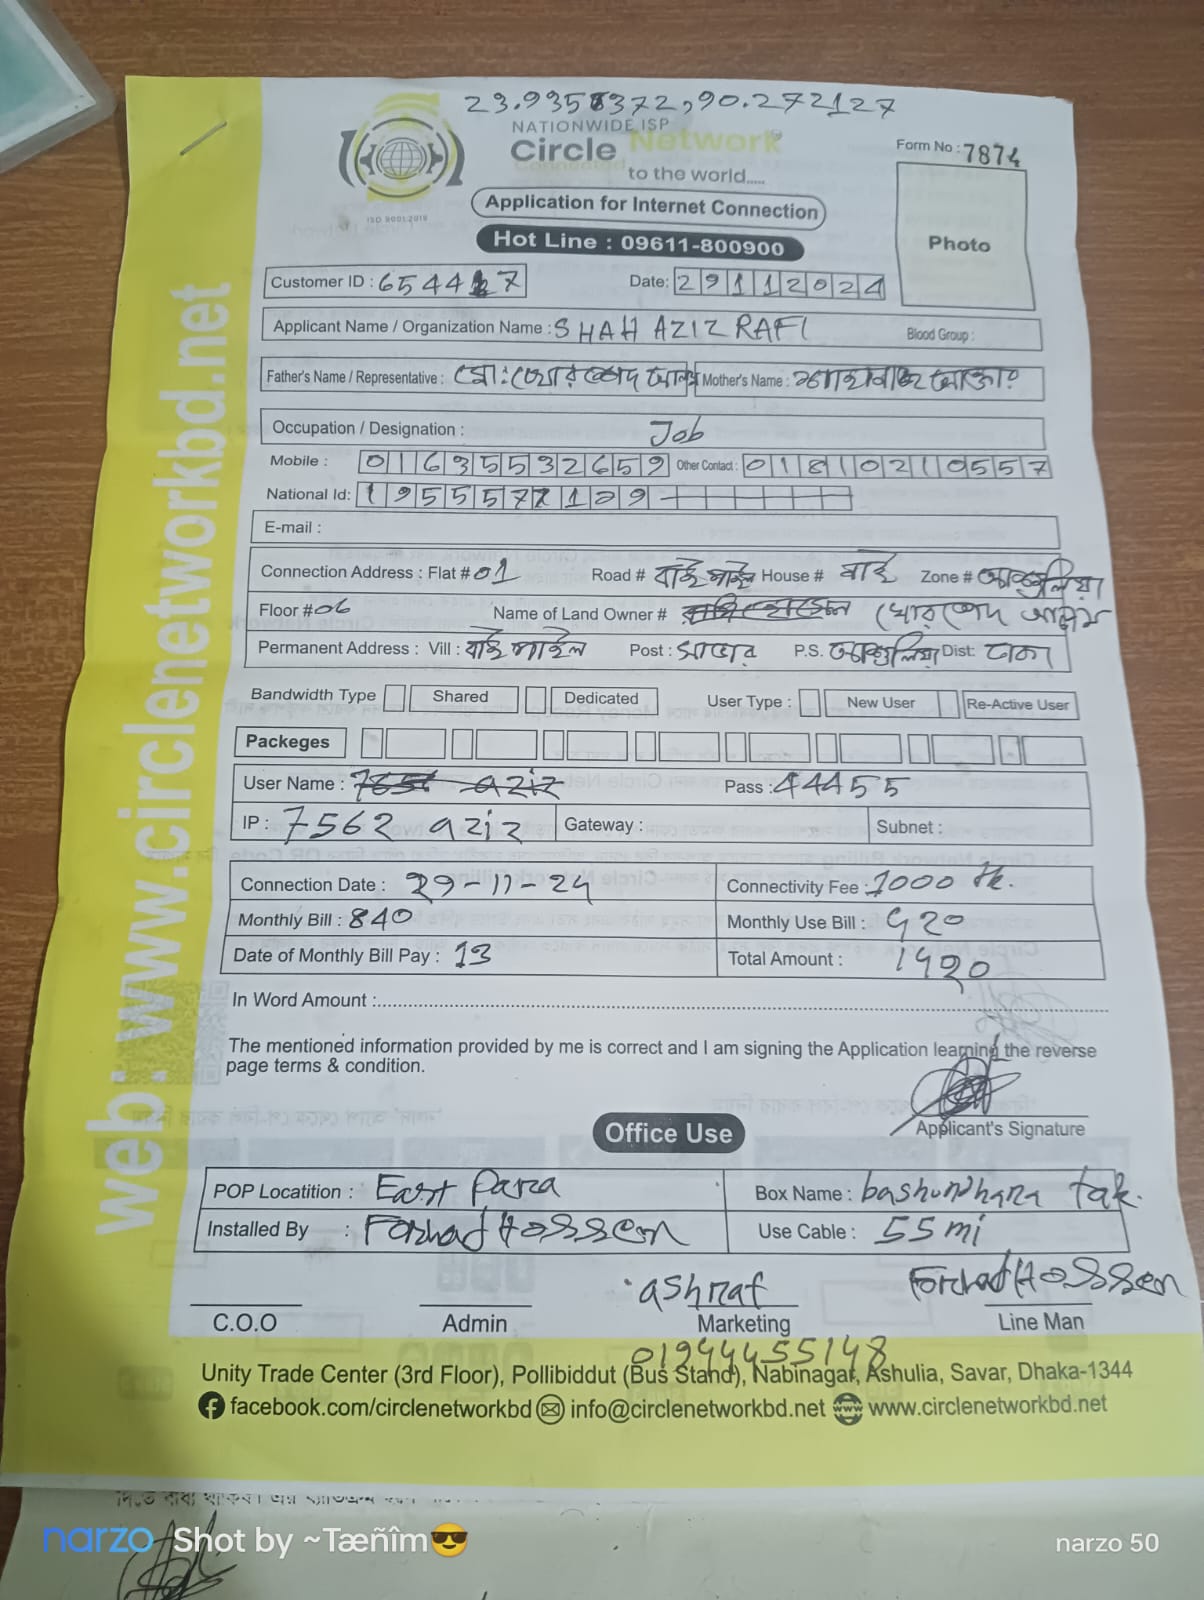 23.9358372,90.272127
NATIONWIDE ISP
Circle Network
to the world.....
ISO 9001:2015
Form No : 7874
Photo
Application for Internet Connection
Hot Line : 09611-800900
Customer ID : 6544 7 Date: 29112024
Applicant Name / Organization Name : SHAH AZIZ RAFI Blood Group :
Father's Name / Representative : মো: খোরশেদ আলম Mother's Name : আক্তার
Occupation / Designation : Job
Mobile : 01635532659 Other Contact : 01810210557
National Id: 1955572129
E-mail :
Connection Address : Flat # 01 Road # বাইপাইল House # বাই Zone # আশুলিয়া
Floor # 06 Name of Land Owner # খোরশেদ আলম
Permanent Address : Vill : বাইপাইল Post : সাভার P.S. আশুলিয়া Dist: ঢাকা
Bandwidth Type Shared Dedicated User Type : New User Re-Active User
Packeges
User Name : aziz Pass : 44455
IP : 7562 aziz Gateway : Subnet :
Connection Date : 29-11-24 Connectivity Fee : 1000 tk.
Monthly Bill : 840 Monthly Use Bill : 420
Date of Monthly Bill Pay : 13 Total Amount : 1420
In Word Amount :
The mentioned information provided by me is correct and I am signing the Application learning the reverse
page terms & condition.
Applicant's Signature
Office Use
POP Locatition : East Para Box Name : bashundhara tak.
Installed By : Forhad Hossen Use Cable : 55 mi
ashraf Forhad Hossen
C.O.O Admin Marketing Line Man
01944455148
Unity Trade Center (3rd Floor), Pollibiddut (Bus Stand), Nabinagar, Ashulia, Savar, Dhaka-1344
facebook.com/circlenetworkbd info@circlenetworkbd.net www.circlenetworkbd.net
web: www.circlenetworkbd.net
narzo Shot by ~Tæñîm😎 narzo 50